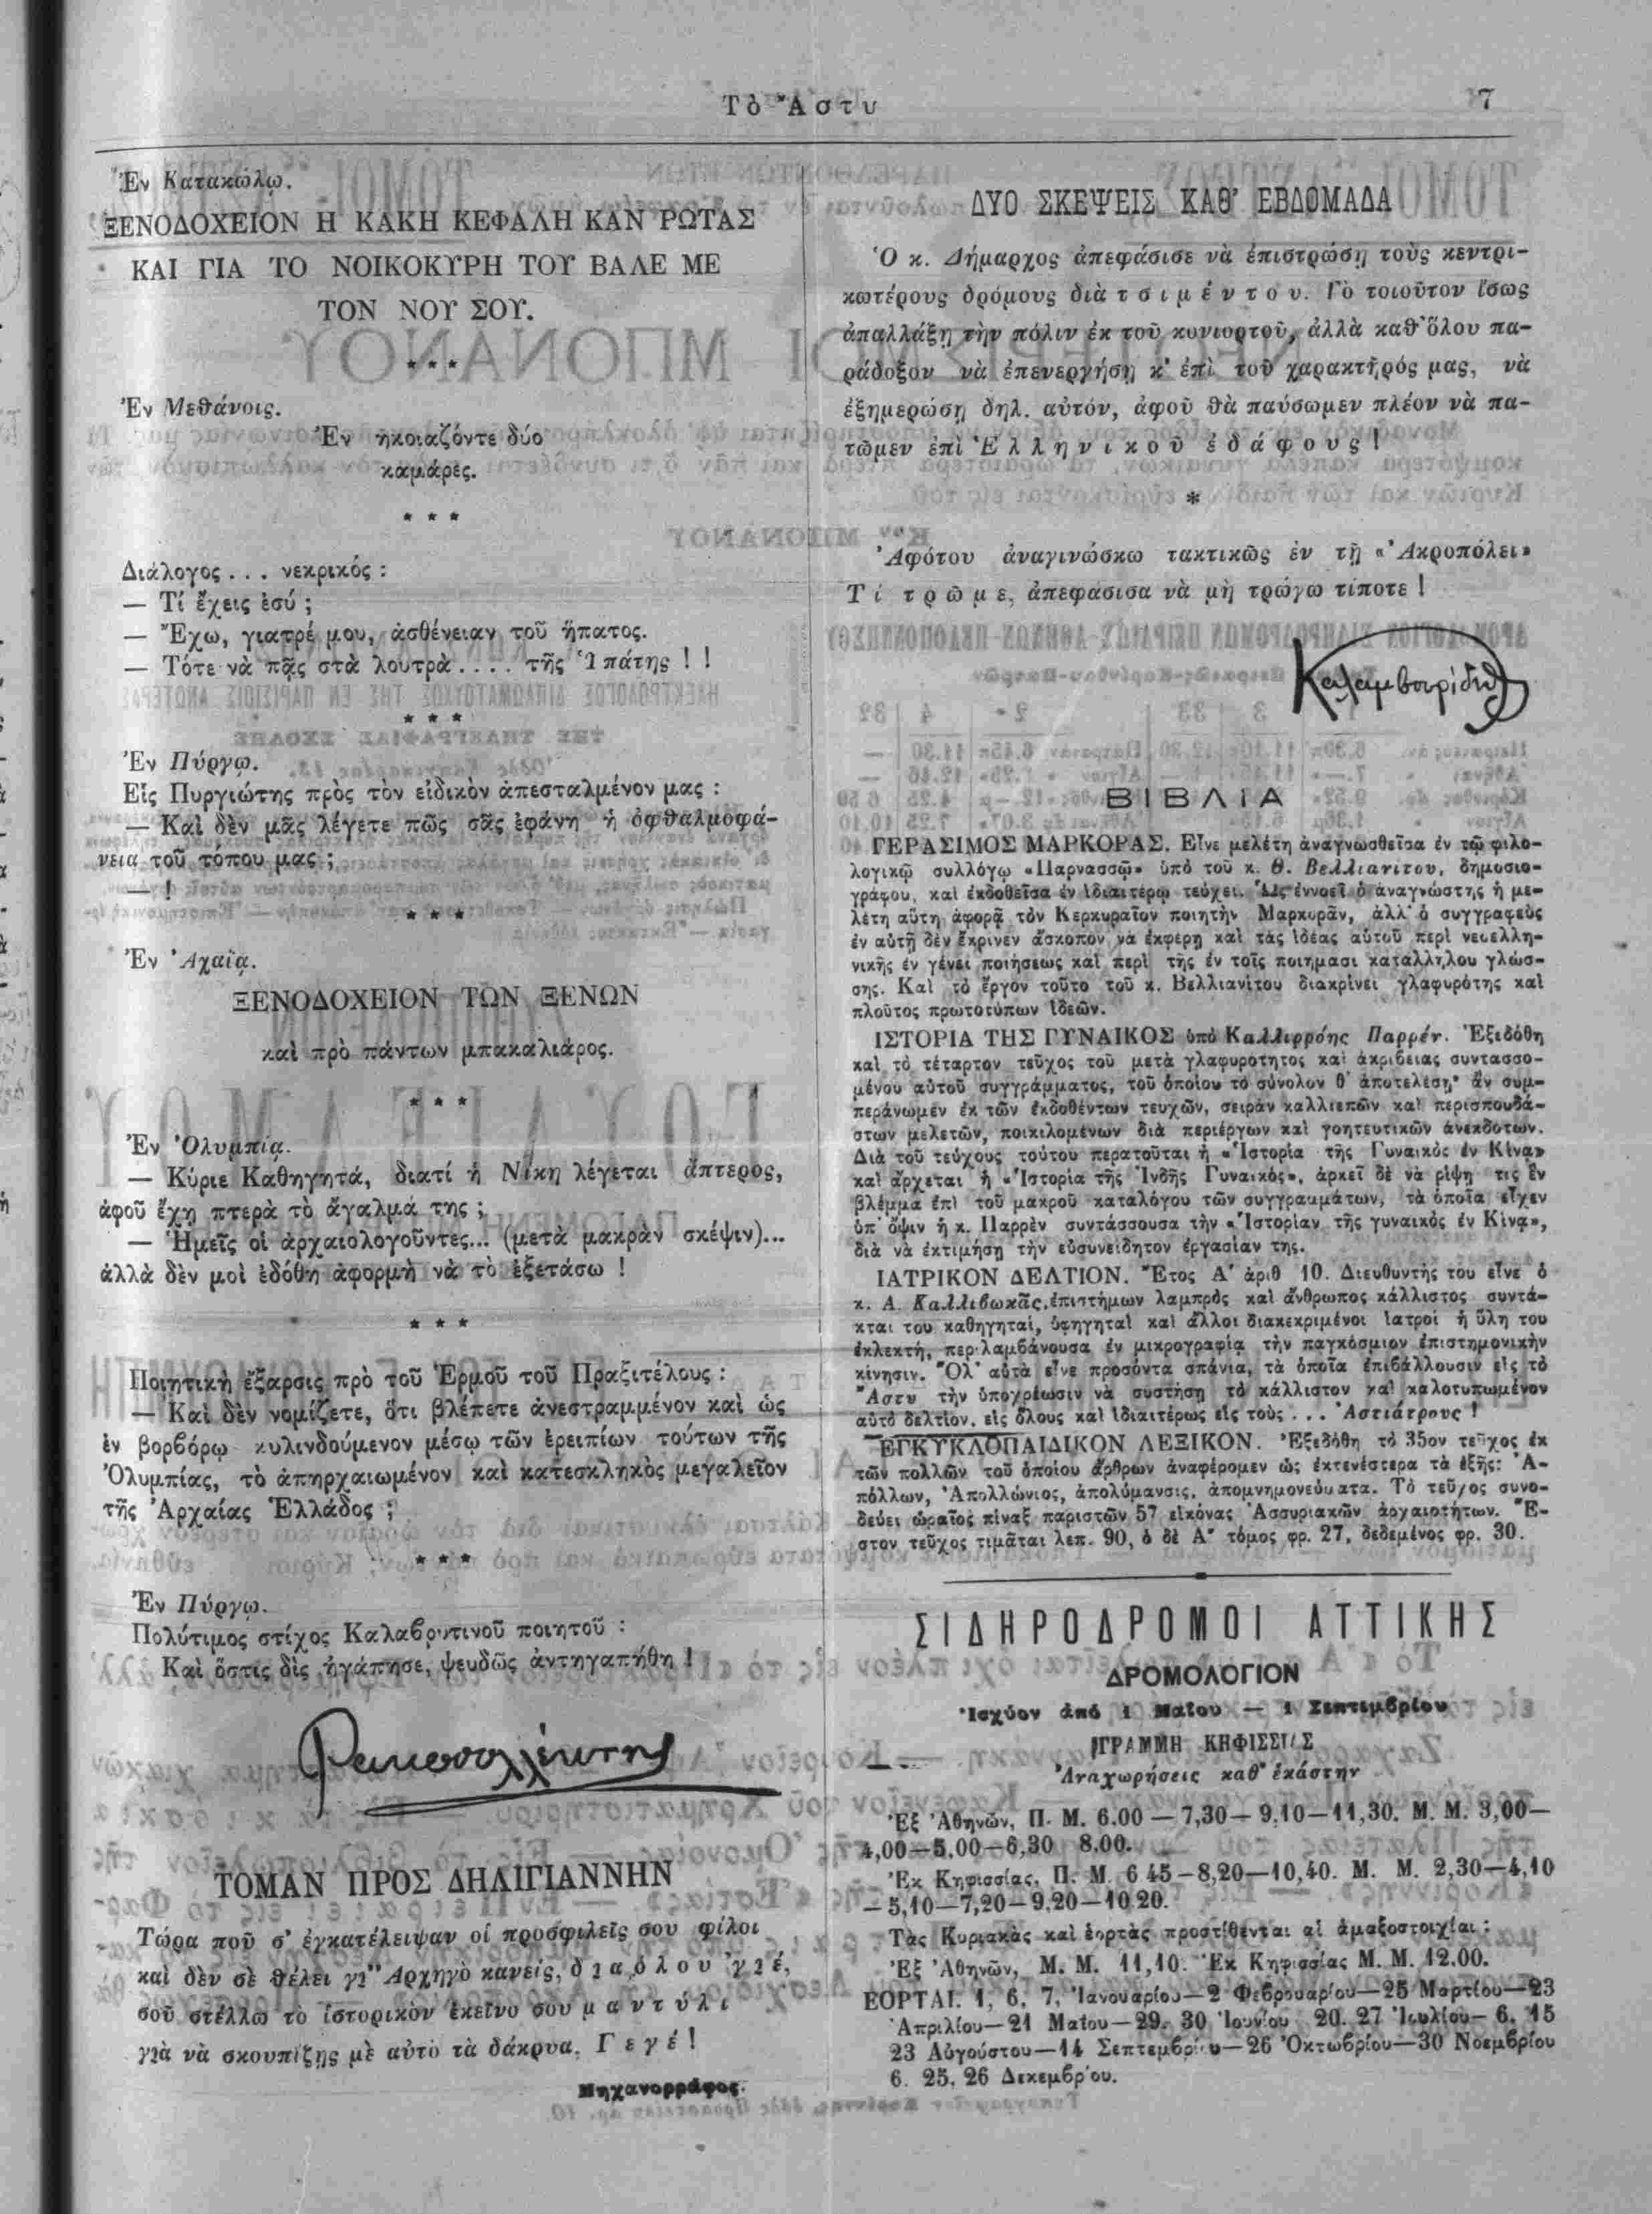 Τὸ Ἄστυ 7
Ἐν Κατακώλῳ.
ΞΕΝΟΔΟΧΕΙΟΝ Η ΚΑΚΗ ΚΕΦΑΛΗ ΚΑΝ ΡΩΤΑΣ
ΚΑΙ ΓΙΑ ΤΟ ΝΟΙΚΟΚΥΡΗ ΤΟΥ ΒΑΛΕ ΜΕ
ΤΟΝ ΝΟΥ ΣΟΥ.
* * *
Ἐν Μεθάνοις.
Ἐν ηκοιαζόντε δύο
καμάρες.
* * *
Διάλογος... νεκρικός :
— Τί ἔχεις ἐσύ ;
— Ἔχω, γιατρέ μου, ἀσθένειαν τοῦ ἥπατος.
— Τότε νὰ πᾷς στὰ λουτρὰ.... τῆς Ὑπάτης ! !
* * *
Ἐν Πύργῳ.
Εἷς Πυργιώτης πρὸς τὸν εἰδικὸν ἀπεσταλμένον μας :
— Καὶ δὲν μᾶς λέγετε πῶς σᾶς ἐφάνη ἡ ὀφθαλμοφά-
νεια τοῦ τόπου μας ;
— !
* * *
Ἐν Ἀχαΐᾳ.
ΞΕΝΟΔΟΧΕΙΟΝ ΤΩΝ ΞΕΝΩΝ
καὶ πρὸ πάντων μπακαλιάρος.
* * *
Ἐν Ὀλυμπίᾳ.
— Κύριε Καθηγητά, διατί ἡ Νίκη λέγεται ἄπτερος,
ἀφοῦ ἔχῃ πτερὰ τὸ ἄγαλμά της ;
— Ἡμεῖς οἱ ἀρχαιολογοῦντες... (μετὰ μακρὰν σκέψιν)...
ἀλλὰ δὲν μοὶ ἐδόθη ἀφορμὴ νὰ τὸ ἐξετάσω !
* * *
Ποιητικὴ ἔξαρσις πρὸ τοῦ Ἑρμοῦ τοῦ Πραξιτέλους :
— Καὶ δὲν νομίζετε, ὅτι βλέπετε ἀνεστραμμένον καὶ ὡς
ἐν βορβόρῳ κυλινδούμενον μέσῳ τῶν ἐρειπίων τούτων τῆς
Ὀλυμπίας, τὸ ἀπηρχαιωμένον καὶ κατεσκληκὸς μεγαλεῖον
τῆς Ἀρχαίας Ἑλλάδος ;
* * *
Ἐν Πύργῳ.
Πολύτιμος στίχος Καλαβρυτινοῦ ποιητοῦ :
Καὶ ὅστις δὶς ἠγάπησε, ψευδῶς ἀντηγαπήθη !
ΤΟΜΑΝ ΠΡΟΣ ΔΗΛΙΓΙΑΝΝΗΝ
Τώρα ποῦ σ' ἐγκατέλειψαν οἱ προσφιλεῖς σου φίλοι
καὶ δὲν σὲ θέλει γι' Ἀρχηγὸ κανείς, διαόλου γιέ,
σοῦ στέλλω τὸ ἱστορικὸν ἐκεῖνο σου μαντύλι
γιὰ νὰ σκουπίζῃς μὲ αὐτὸ τὰ δάκρυα, Γεγέ !
Μηχανορράφος.
ΔΥΟ ΣΚΕΨΕΙΣ ΚΑΘ' ΕΒΔΟΜΑΔΑ
Ὁ κ. Δήμαρχος ἀπεφάσισε νὰ ἐπιστρώσῃ τοὺς κεντρι-
κωτέρους δρόμους διὰ τσιμέντου. Τὸ τοιοῦτον ἴσως
ἀπαλλάξῃ τὴν πόλιν ἐκ τοῦ κονιορτοῦ, ἀλλὰ καθ' ὅλου πα-
ράδοξον νὰ ἐπενεργήσῃ κ' ἐπὶ τοῦ χαρακτῆρός μας, νὰ
ἐξημερώσῃ δηλ. αὐτόν, ἀφοῦ θὰ παύσωμεν πλέον νὰ πα-
τῶμεν ἐπὶ Ἑλληνικοῦ ἐδάφους !
*
Ἀφότου ἀναγινώσκω τακτικῶς ἐν τῇ «Ἀκροπόλει»
Τί τρῶμε, ἀπεφάσισα νὰ μὴ τρώγω τίποτε !
Καλαμβουρίδης
ΒΙΒΛΙΑ
ΓΕΡΑΣΙΜΟΣ ΜΑΡΚΟΡΑΣ. Εἶνε μελέτη ἀναγνωσθεῖσα ἐν τῷ φιλο-
λογικῷ συλλόγῳ «Παρνασσῷ» ὑπὸ τοῦ κ. Θ. Βελλιανίτου, δημοσιο-
γράφου, καὶ ἐκδοθεῖσα ἐν ἰδιαιτέρῳ τεύχει. Ὡς ἐννοεῖ ὁ ἀναγνώστης ἡ με-
λέτη αὕτη ἀφορᾷ τὸν Κερκυραῖον ποιητὴν Μαρκορᾶν, ἀλλ' ὁ συγγραφεὺς
ἐν αὐτῇ δὲν ἔκρινεν ἄσκοπον νὰ ἐκφέρῃ καὶ τὰς ἰδέας αὐτοῦ περὶ νεοελλη-
νικῆς ἐν γένει ποιήσεως καὶ περὶ τῆς ἐν τοῖς ποιήμασι καταλλήλου γλώσ-
σης. Καὶ τὸ ἔργον τοῦτο τοῦ κ. Βελλιανίτου διακρίνει γλαφυρότης καὶ
πλοῦτος πρωτοτύπων ἰδεῶν.
ΙΣΤΟΡΙΑ ΤΗΣ ΓΥΝΑΙΚΟΣ ὑπὸ Καλλιρρόης Παρρέν. Ἐξεδόθη
καὶ τὸ τέταρτον τεῦχος τοῦ μετὰ γλαφυρότητος καὶ ἀκριβείας συντασσο-
μένου αὐτοῦ συγγράμματος, τοῦ ὁποίου τὸ σύνολον θ' ἀποτελέσῃ, ἂν συμ-
περάνωμεν ἐκ τῶν ἐκδοθέντων τευχῶν, σειρὰν καλλιεπῶν καὶ περισπουδά-
στων μελετῶν, ποικιλομένων διὰ περιέργων καὶ γοητευτικῶν ἀνεκδότων.
Διὰ τοῦ τεύχους τούτου περατοῦται ἡ «Ἱστορία τῆς Γυναικὸς ἐν Κίνᾳ»
καὶ ἄρχεται ἡ «Ἱστορία τῆς Ἰνδῆς Γυναικός», ἀρκεῖ δὲ νὰ ρίψῃ τις ἓν
βλέμμα ἐπὶ τοῦ μακροῦ καταλόγου τῶν συγγραμμάτων, τὰ ὁποῖα εἶχεν
ὑπ' ὄψιν ἡ κ. Παρρὲν συντάσσουσα τὴν «Ἱστορίαν τῆς γυναικὸς ἐν Κίνᾳ»,
διὰ νὰ ἐκτιμήσῃ τὴν εὐσυνείδητον ἐργασίαν της.
ΙΑΤΡΙΚΟΝ ΔΕΛΤΙΟΝ. Ἔτος Α' ἀριθ 10. Διευθυντής του εἶνε ὁ
κ. Α. Καλλιβωκᾶς, ἐπιστήμων λαμπρὸς καὶ ἄνθρωπος κάλλιστος συντά-
κται του καθηγηταί, ὑφηγηταὶ καὶ ἄλλοι διακεκριμένοι ἰατροὶ ἡ ὕλη του
ἐκλεκτή, περιλαμβάνουσα ἐν μικρογραφίᾳ τὴν παγκόσμιον ἐπιστημονικὴν
κίνησιν. Ὅλ' αὐτὰ εἶνε προσόντα σπάνια, τὰ ὁποῖα ἐπιβάλλουσιν εἰς τὸ
Ἄστυ τὴν ὑποχρέωσιν νὰ συστήσῃ τὸ κάλλιστον καὶ καλοτυπωμένον
αὐτὸ δελτίον, εἰς ὅλους καὶ ἰδιαιτέρως εἰς τοὺς ... Ἀστιάτρους !
ΕΓΚΥΚΛΟΠΑΙΔΙΚΟΝ ΛΕΞΙΚΟΝ. Ἐξεδόθη τὸ 35ον τεῦχος ἐκ
τῶν πολλῶν τοῦ ὁποίου ἄρθρων ἀναφέρομεν ὡς ἐκτενέστερα τὰ ἑξῆς: Ἀ-
πόλλων, Ἀπολλώνιος, ἀπολύμανσις, ἀπομνημονεύματα. Τὸ τεῦχος συνο-
δεύει ὡραῖος πίναξ παριστῶν 57 εἰκόνας Ἀσσυριακῶν ἀρχαιοτήτων. Ἕ-
στον τεῦχος τιμᾶται λεπ. 90, ὁ δὲ Α' τόμος φρ. 27, δεδεμένος φρ. 30.
ΣΙΔΗΡΟΔΡΟΜΟΙ ΑΤΤΙΚΗΣ
ΔΡΟΜΟΛΟΓΙΟΝ
Ἰσχύον ἀπὸ 1 Μαΐου — 1 Σεπτεμβρίου
ΓΡΑΜΜΗ ΚΗΦΙΣΣΙΑΣ
Ἀναχωρήσεις καθ' ἑκάστην
Ἐξ Ἀθηνῶν, Π. Μ. 6.00 — 7,30 — 9,10—11,30. Μ. Μ. 3,00—
4,00—5,00—6,30 8,00.
Ἐκ Κηφισσίας, Π. Μ. 6 45—8,20—10,40. Μ. Μ. 2,30—4,10
—5,10—7,20—9,20—10,20.
Τὰς Κυριακὰς καὶ ἑορτὰς προστίθενται αἱ ἁμαξοστοιχίαι :
Ἐξ Ἀθηνῶν, Μ. Μ. 11,10. Ἐκ Κηφισσίας Μ. Μ. 12.00.
ΕΟΡΤΑΙ. 1, 6, 7, Ἰανουαρίου—2 Φεβρουαρίου—25 Μαρτίου—23
Ἀπριλίου—21 Μαΐου—29. 30 Ἰουνίου 20. 27 Ἰουλίου— 6. 15
23 Αὐγούστου—14 Σεπτεμβρίου—26 Ὀκτωβρίου—30 Νοεμβρίου
6. 25, 26 Δεκεμβρίου.